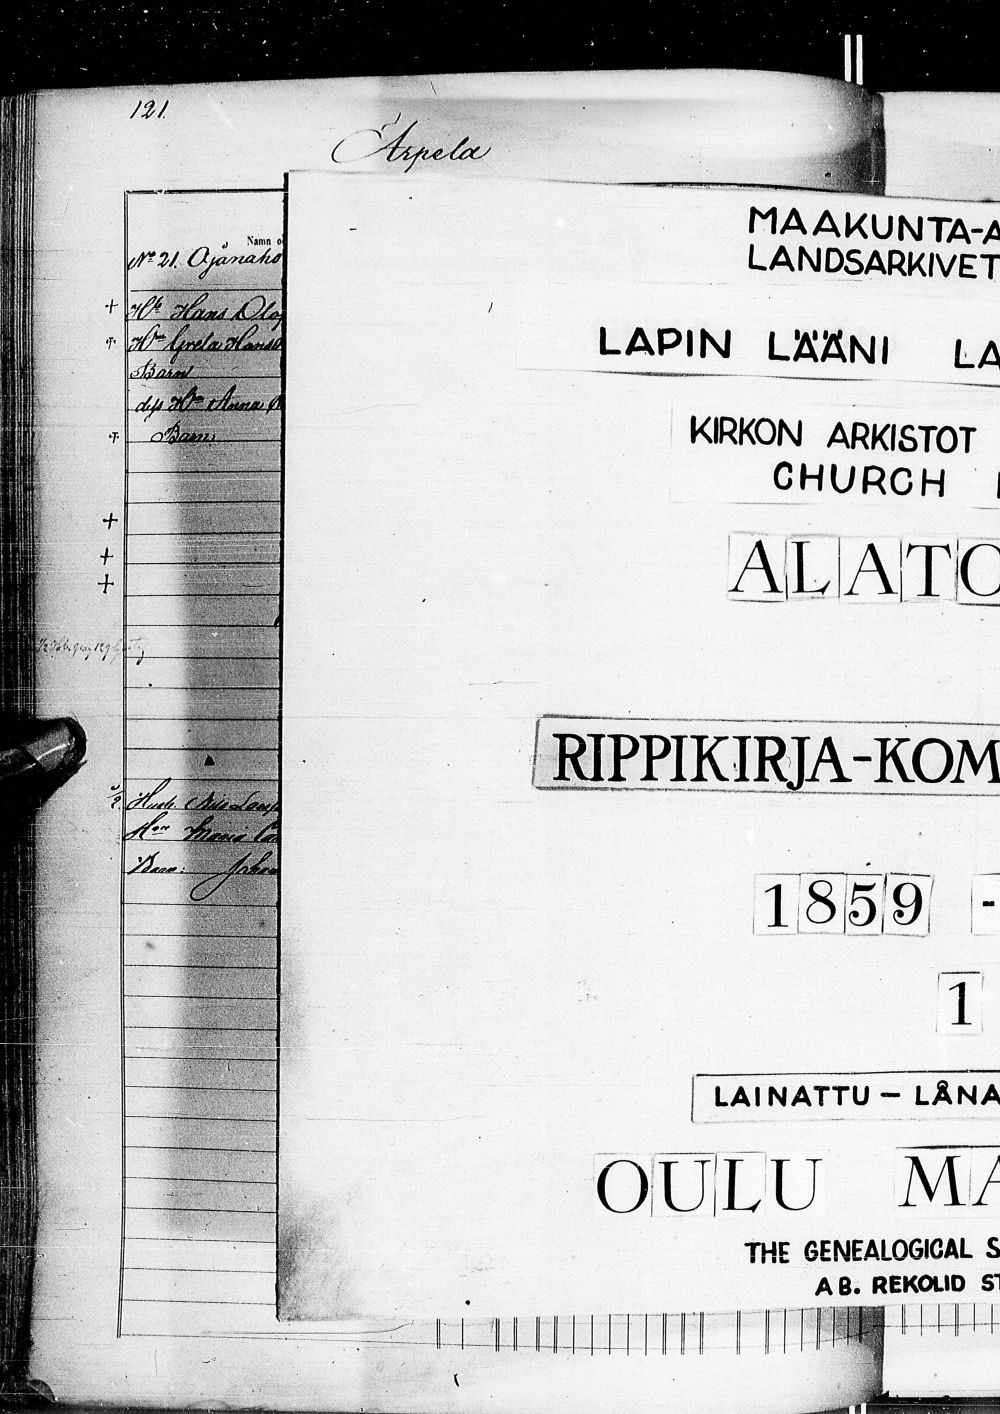 121.
Arpela
Namn o
Nº 21. Ajanaho
Hans Olof
Greta Hans
Barn
Anna
Barn
Maria
Barn: Johan
MAAKUNTA-A
LANDSARKIVET
LAPIN LÄÄNI LA
KIRKON ARKISTOT
CHURCH
ALATO
RIPPIKIRJA-KOM
1859 -
1
LAINATTU – LÅNA
OULU MA
THE GENEALOGICAL S
AB. REKOLID ST